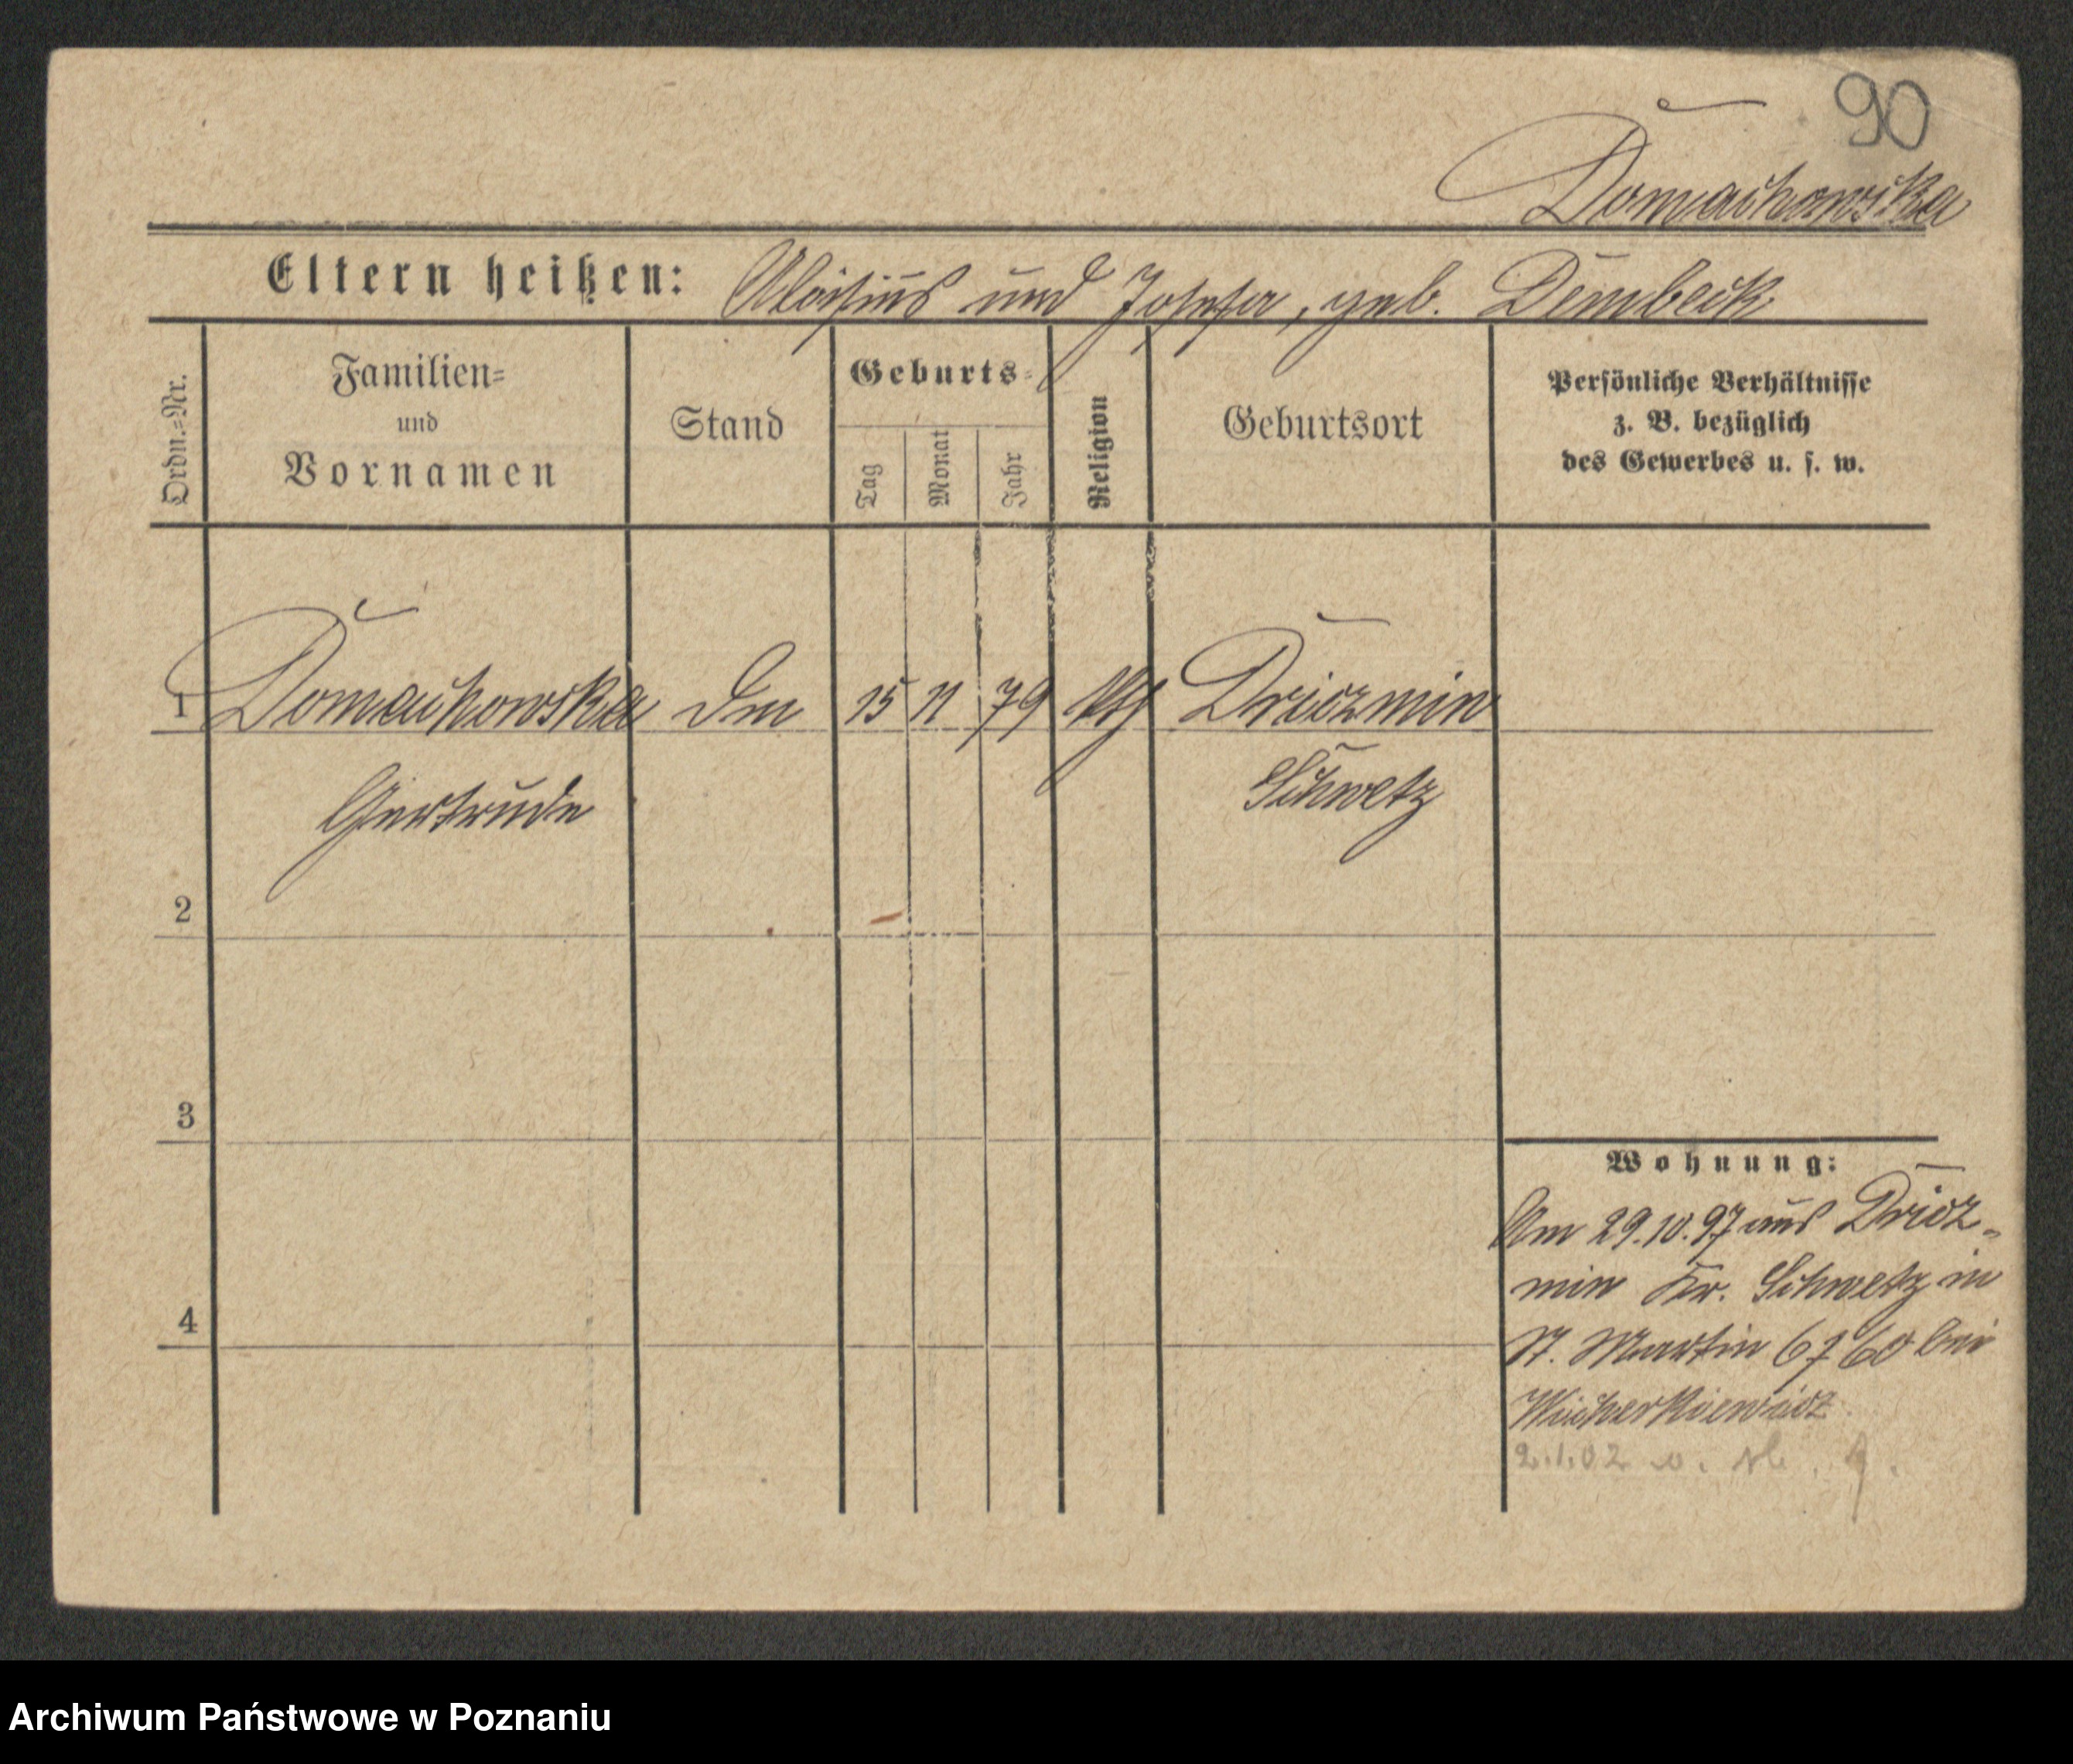 90
Domachowska
Eltern heißen: Aloisius und Josefa, geb. Dembeck
Ordn.=Nr.
Familien=
und
Vornamen
Stand
Geburts=
Tag
Monat
Jahr
Religion
Geburtsort
Persönliche Verhältnisse
z. B. bezüglich
des Gewerbes u. s. w.
1 Domachowska 15 11 79 kth Driczmin
Gertrude Schwetz
2
3
4
Wohnung:
Am 29.10.97 aus Dricz-
min Kr. Schwetz in
St. Martin 6760 bei
Wicherkiewicz
2.1.02
Archiwum Państwowe w Poznaniu